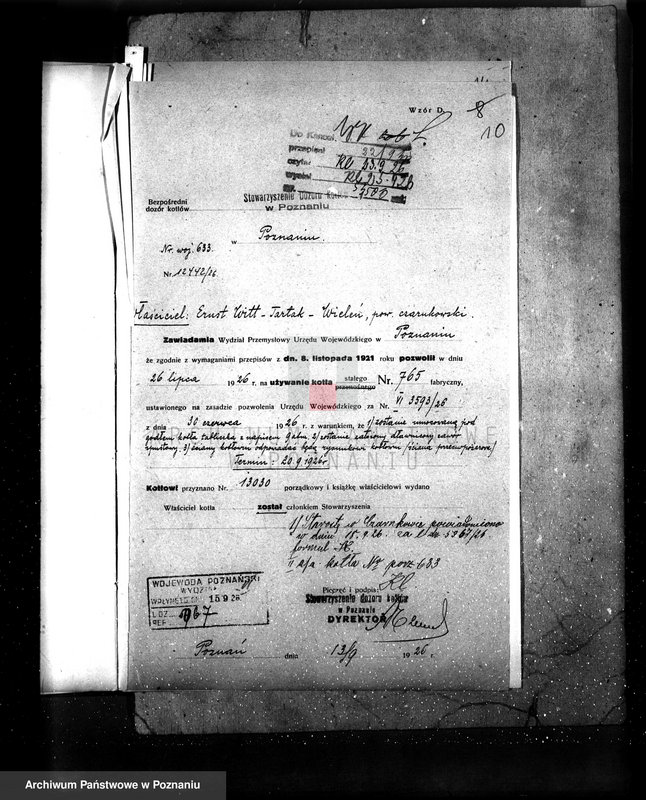 Wzór D. 8
10
Do Kancel.
przepisał
czytał 23.9.26
wysłał
Nr.
Bezpośredni
dozór kotłów
Stowarzyszenie Dozoru kotłów
w Poznaniu
w Poznaniu.
Nr. woj. 633.
Nr 12442/26
Właściciel: Ernst Witt - Tartak - Wieleń, pow. czarnkowski.
Zawiadamia Wydział Przemysłowy Urzędu Wojewódzkiego w Poznaniu
że zgodnie z wymaganiami przepisów z dn. 8. listopada 1921 roku pozwolił w dniu
26 lipca 1926 r. na używanie kotła stałego przewoźnego Nr. 765 fabryczny,
ustawionego na zasadzie pozwolenia Urzędu Wojewódzkiego za Nr. VI 3593/26
z dnia 30 czerwca 1926 r. z warunkiem, że 1/ zostanie umocowaną pod
godłem kotła tabliczka z napisem 9 atm. 2/ zostanie założony dławnicowy zawór
spustowy, 3/ ściany kotłowni odpowiadać będą rysunkowi kotłowni /ściana przeciwpożarowa/
Termin: 20.9.1926r
Kotłowi przyznano Nr. 13030 porządkowy i książkę właścicielowi wydano
Właściciel kotła został członkiem Stowarzyszenia
1/ Starostę w Czarnkowie powiadomiono
w dniu 18.9.26. za L. dz 5967/26
formul. K.
II a/a kotła Nr porz 633
WOJEWODA POZNAŃSKI
WYDZIAŁ
WPŁYNĘŁO DNIA 15.9.26
L. DZ. 5967
REF.
Pieczęć i podpis:
Stowarzyszenie dozoru kotłów
w Poznaniu
DYREKTOR
Poznań dnia 13/9 1926 r.
ARCHIWUM PAŃSTWOWE
W POZNANIU
Archiwum Państwowe w Poznaniu